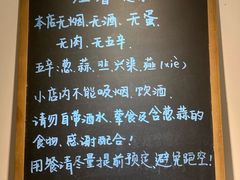 本店无烟、无酒、无蛋
无肉、无五辛.
五辛:葱、蒜、韭、兴渠、薤(xiè)
小店内不能吸烟、饮酒.
请勿自带酒水、荤食及含葱蒜的
食物,感谢配合!
用餐请尽量提前预定,避免跑空!